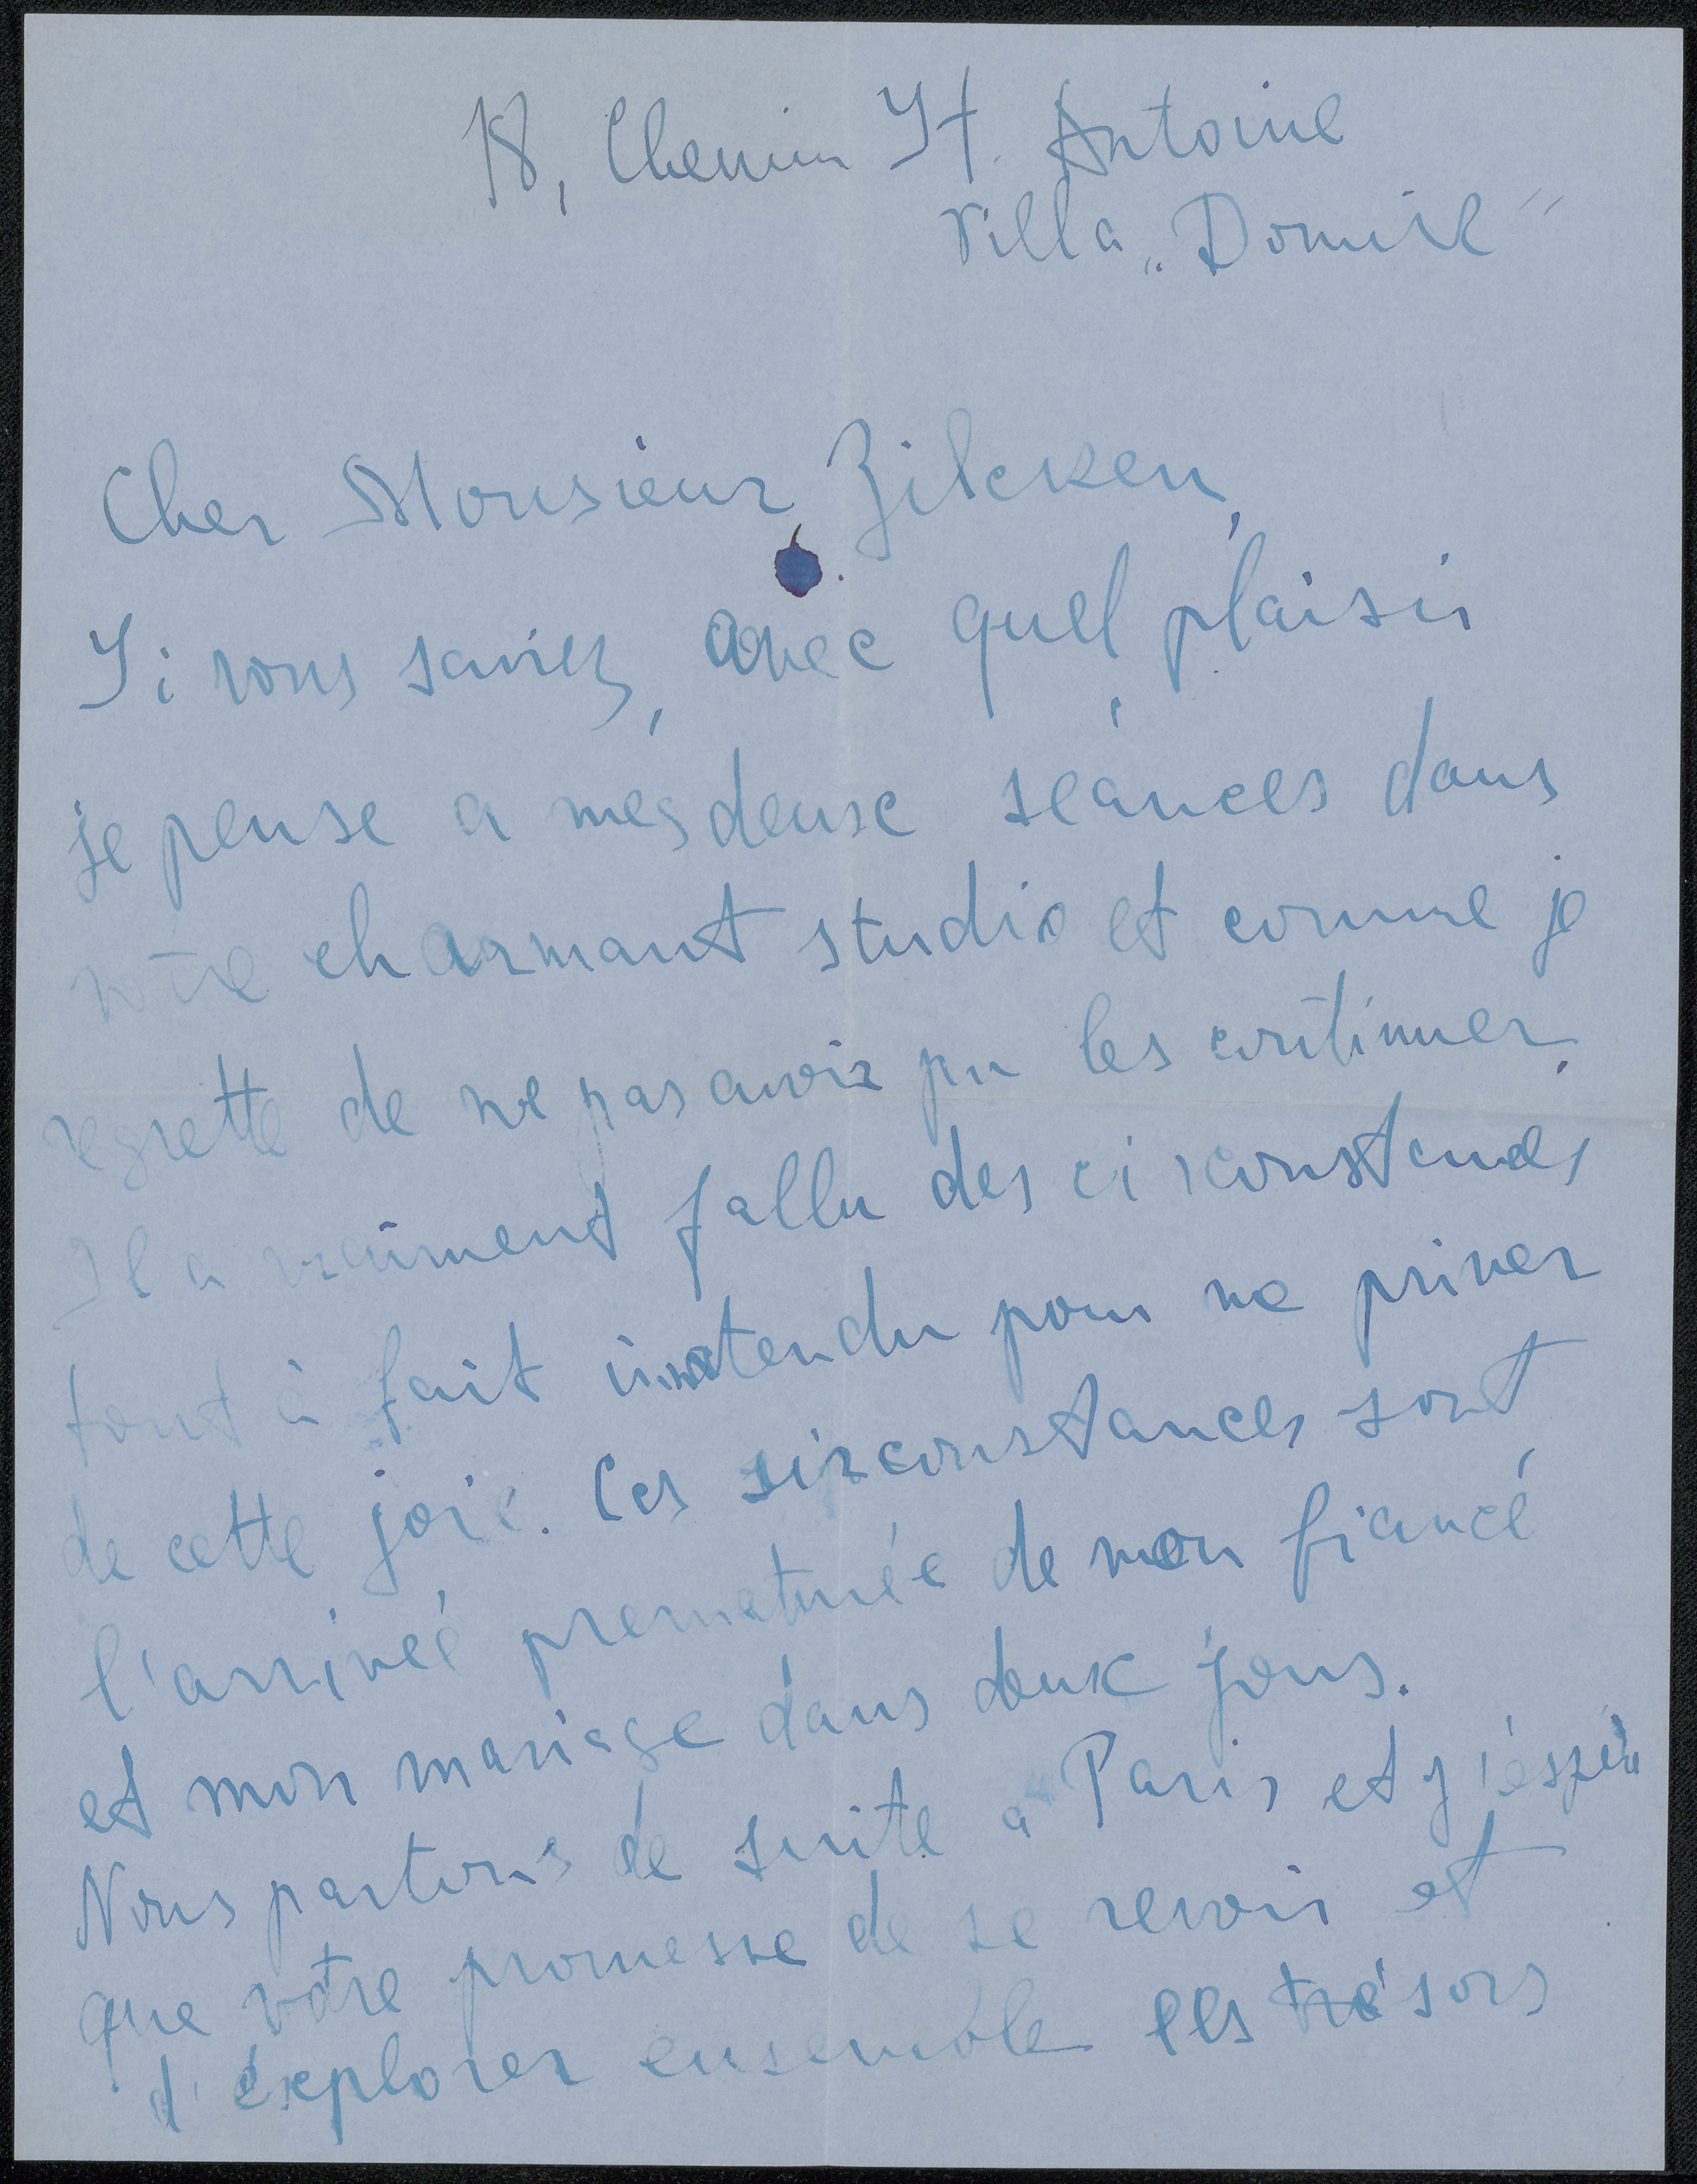 18, Chemin St. Antoine
Villa „Domire"
Cher Monsieur Zilcken,
Si vous saviez, avec quel plaisir
je pense a mes deux séances dans
vôtre charmant studio et comme je
regrette de ne pas avoir pu les continuer.
Il a vraiment fallu des circonstances
tout à fait inatendu pour me priver
de cette joie. Ces sirconstances sont
l'arrivée prematurée de mon fiancé
et mon mariage dans deux jours.
Nous partons de suite a Paris et j'éspère
que vôtre promesse de se revoir et
d'éxplorer ensemble les trésors